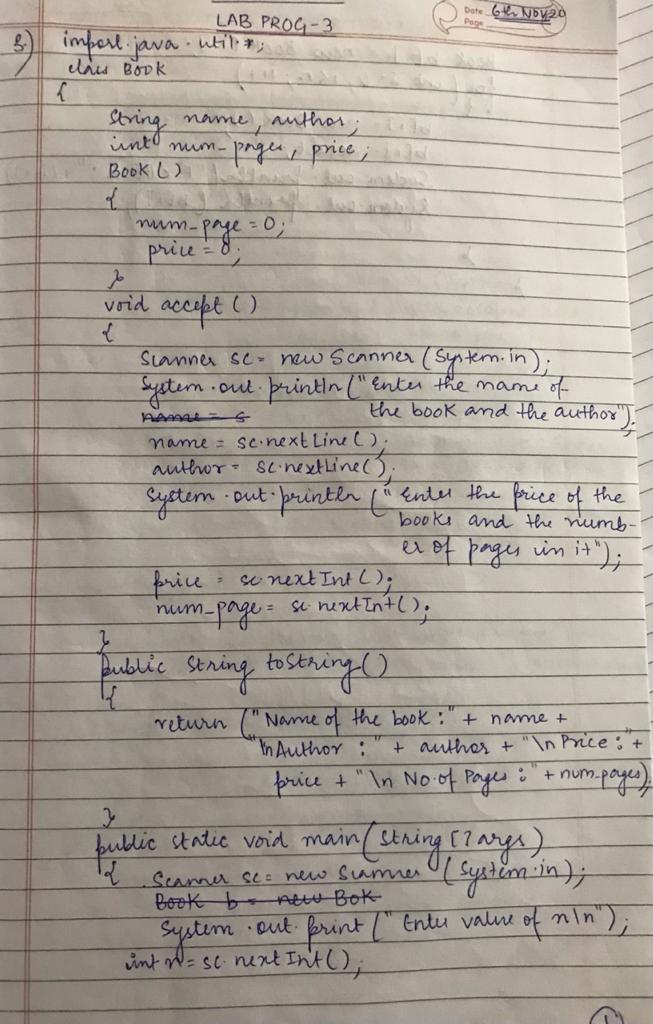 LAB PROG-3
Date 6th Nov 20
Page
3.) import java.util.*;
class BOOK
{
String name, author;
int num-pages, price;
BOOK()
{
num-page = 0;
price = 0;
}
void accept()
{
Scanner sc = new Scanner (System.in);
System.out.println("Enter the name of
name = s
the book and the author");
name = sc.nextLine();
author = sc.nextLine();
System.out.println ("Enter the price of the
books and the numb-
er of pages in it");
price = sc.nextInt();
num-page = sc.nextInt();
}
public String toString()
{
return ("Name of the book :" + name +
"\nAuthor :" + author + "\n Price :" +
price + "\n No.of Pages :" + num-pages);
}
public static void main(String [] args)
{ Scanner sc = new Scanner (System.in);
Book b = new Bok
System.out.print ("Enter value of n\n");
int n = sc.nextInt();
1